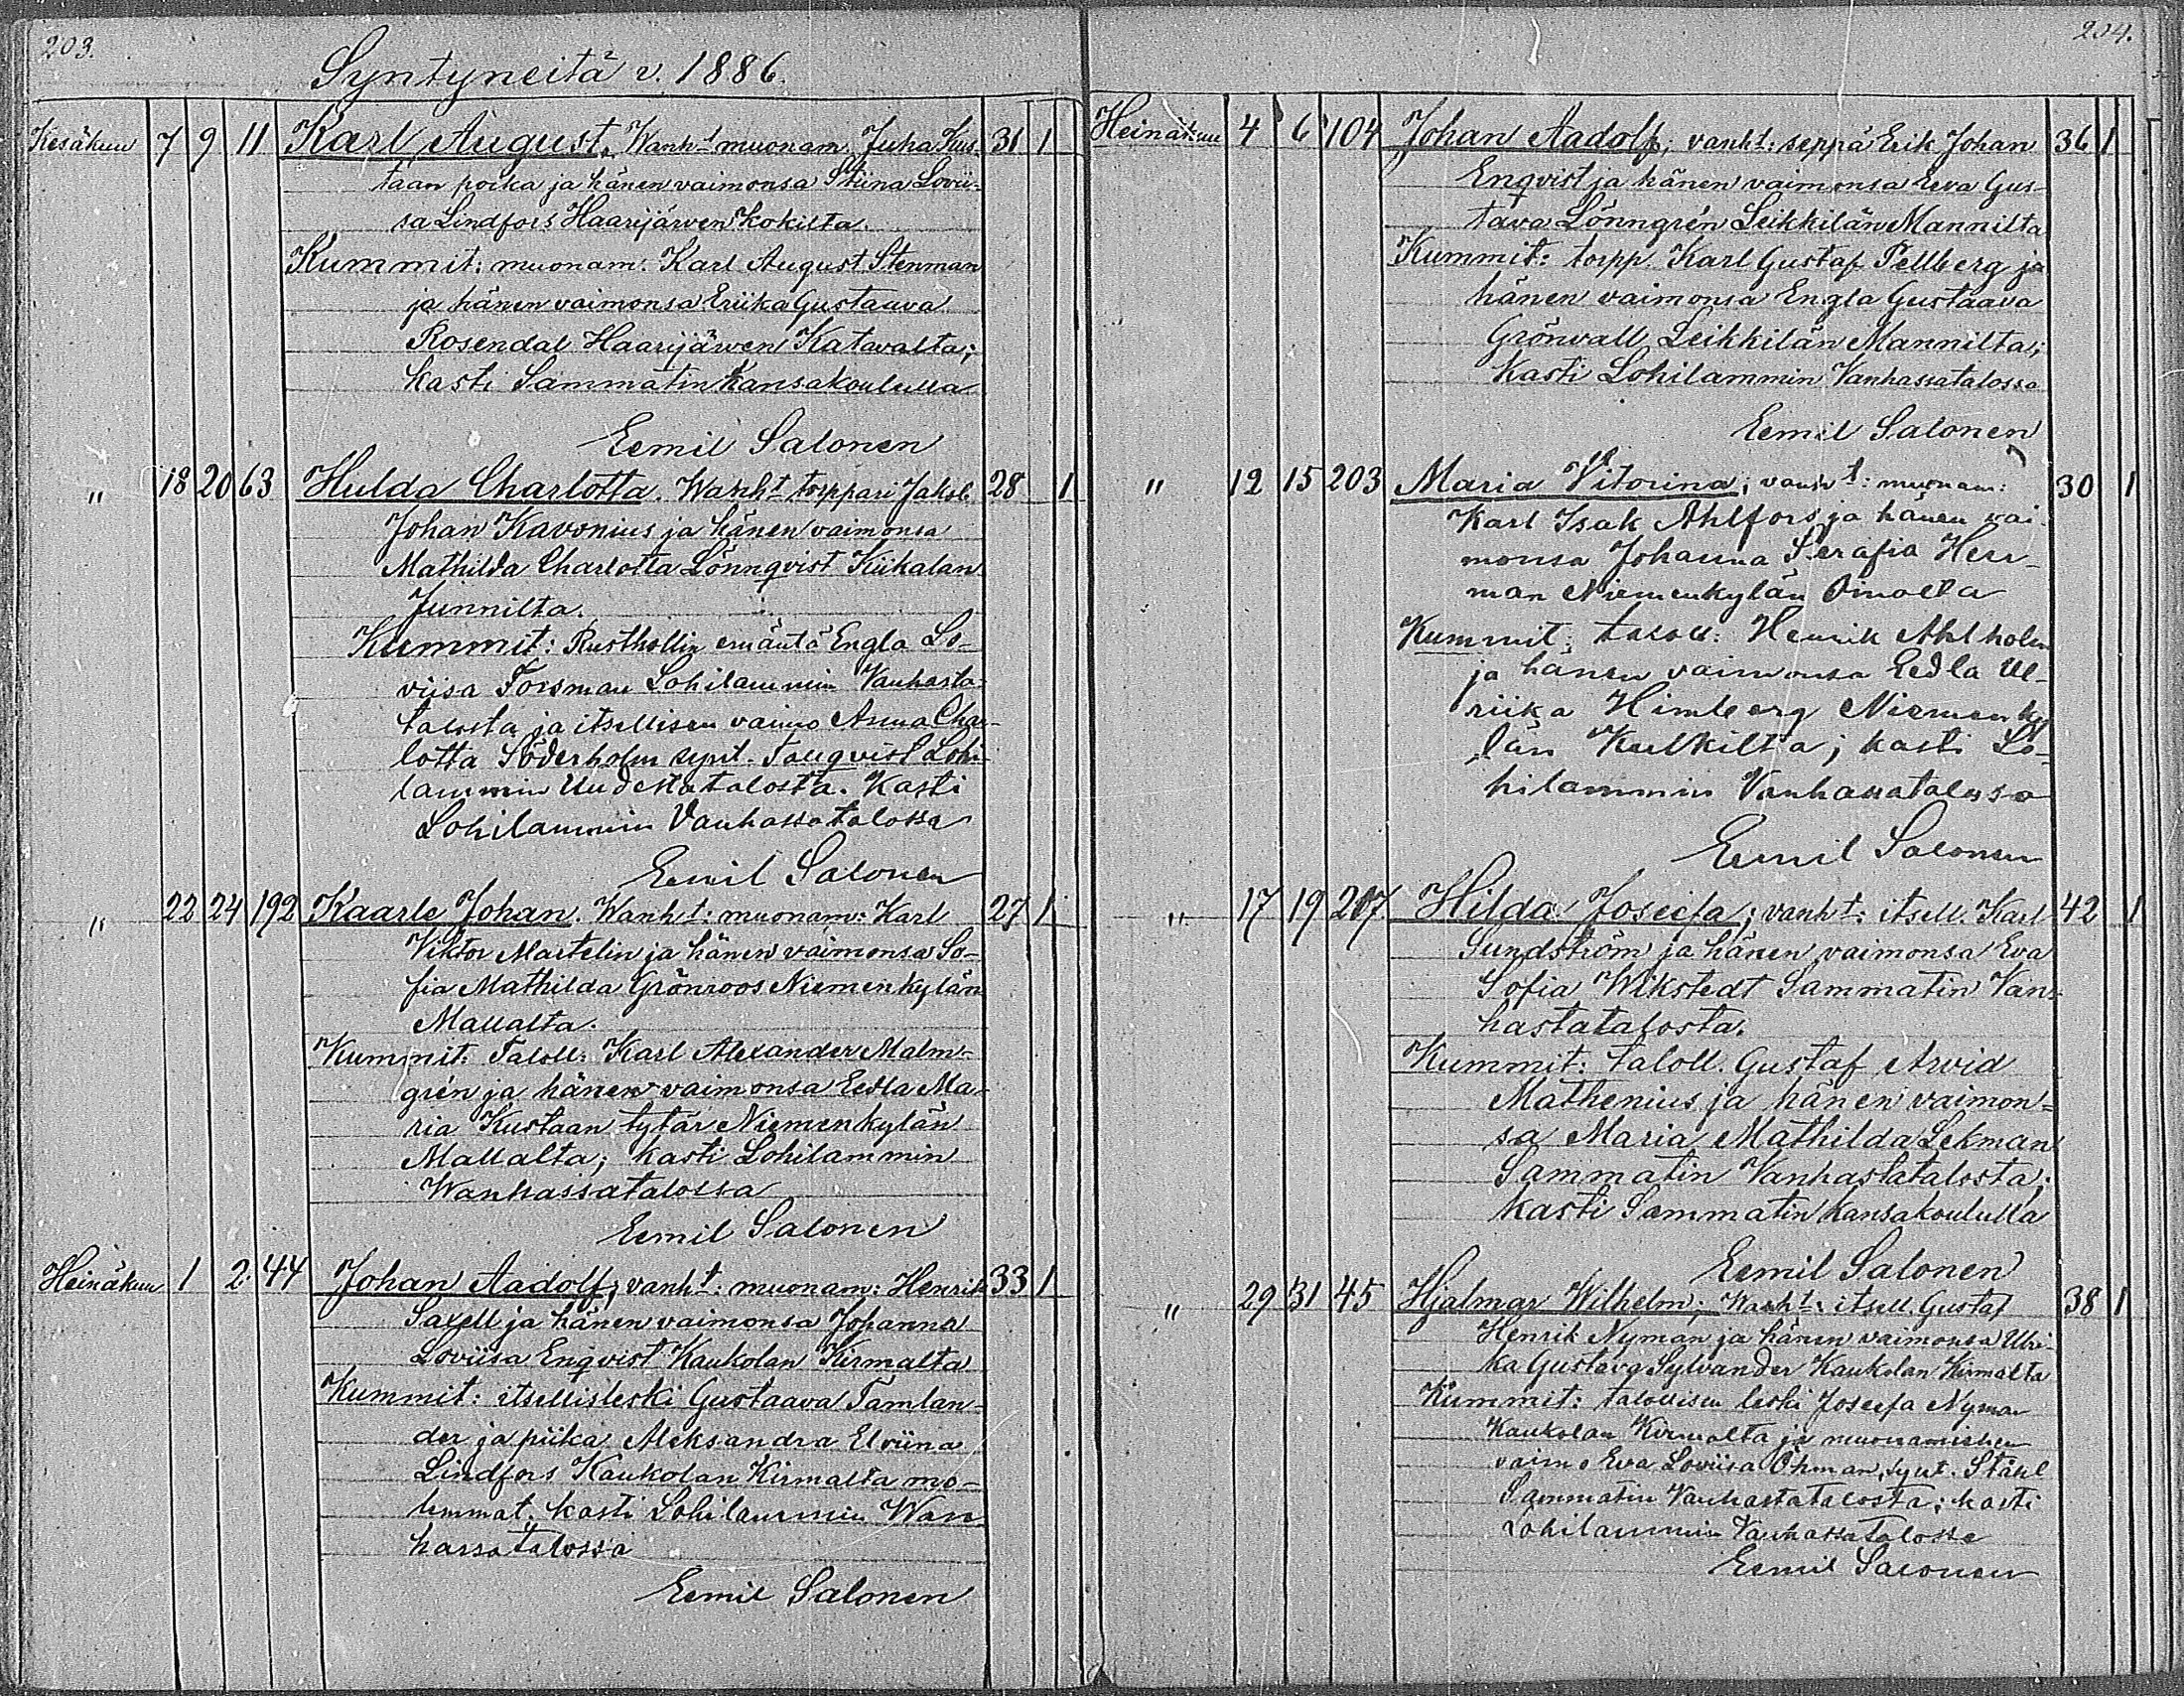 203.
Syntyneitä v. 1886.
Kesäkuu 7 9 11 Karl August. Wanht muonam. Juha Kus- 31 1
taan poika ja hänen vaimonsa Stiina Lovii-
sa Lindfors Haarijärven Kokilta.
Kummit: muonam. Karl August Stenman
ja hänen vaimonsa Eriika Gustaava
Rosendal Haarijärwen Katavalta;
kasti Sammatin Kansakoululla
Eemil Salonen
" 18 20 63 Hulda Charlotta. Wanht torppari Jakob 28 1
Johan Kavonius ja hänen vaimonsa
Mathilda Charlotta Lönnqvist Kiikalan
Junnilta.
Kummit: Rusthollin emäntä Engla Lo-
viisa Forsman Lohilammin Vanhasta-
talosta ja itsellisen vaimo Anna Char-
lotta Söderholm synt. Lohi-
lammin Uudestatalosta. Kasti
Lohilammin Vanhassatalossa
Eemil Salonen
" 22 24 192 Kaarle Johan. Wanht: muonam: Karl 27 1
Viktor Martelin ja hänen vaimonsa So-
fia Mathilda Grönroos Niemenkylän
Mallalta.
Kummit: Taloll. Karl Alexander Malm-
grén ja hänen vaimonsa Eedla Ma-
ria Kustaan tytär Niemenkylän
Mallalta; kasti Lohilammin
Wanhassatalossa
Eemil Salonen
Heinäkuu 1 2 44 Johan Aadolf; vanht: muonam: Henrik 33 1
Saxell ja hänen vaimonsa Johanna
Loviisa Enqvist Kaukolan Kirmalta
Kummit: itsellisleski Gustaava Tamlan-
der ja piika Aleksandra Elviina
Lindfors Kaukolan Kirmalta mo-
lemmat. kasti Lohilammin Wan-
hassatalossa
Eemil Salonen
204.
Heinäkuu 4 6 104 Johan Aadolf; vanht: seppä Erik Johan 36 1
Enqvist ja hänen vaimonsa Eeva Gus-
tava Lönngrén Leikkilän Mannilta
Kummit: torpp. Karl Gustaf Pellberg ja
hänen vaimonsa Engla Gustaava
Grönvall Leikkilän Mannilta;
Kasti Lohilammin Vanhassatalossa
Eemil Salonen
" 12 15 203 Maria Vitorina; vanht: muonam: 30 1
Karl Isak Ahlfors ja hänen vai-
monsa Johanna Serafia Herr-
man Niemenkylän Oinolta
Kummit: taloll: Henrik Ahlholm
ja hänen vaimonsa Eedla Ul-
riika Himberg Niemenky-
län Kulkilta; kasti Lo-
hilammin Vanhassatalossa
Eemil Salonen
" 17 19 207 Hilda Joseefa; vanht: itsell. Karl 42 1
Sundström ja hänen vaimonsa Eva
Sofia Wikstedt Sammatin Van-
hastatalosta.
Kummit: taloll. Gustaf Arvid
Mathenius ja hänen vaimon-
sa Maria Mathilda Lekman
Sammatin Vanhastatalosta;
kasti Sammatin kansakoululla
Eemil Salonen
" 29 31 45 Hjalmar Wilhelm; Wanht: itsell. Gustaf 38 1
Henrik Nyman ja hänen vaimonsa Ulri-
ka Gustava Sylvander Kaukolan Kirmalta
Kummit: talollisen leski Joseefa Nyman
Kaukolan Kirmalta ja muonamiehen
vaimo Eva Loviisa Öhman, synt. Ståhl
Sammatin Vanhastatalosta; kasti
Lohilammin Vanhassatalossa
Eemil Salonen